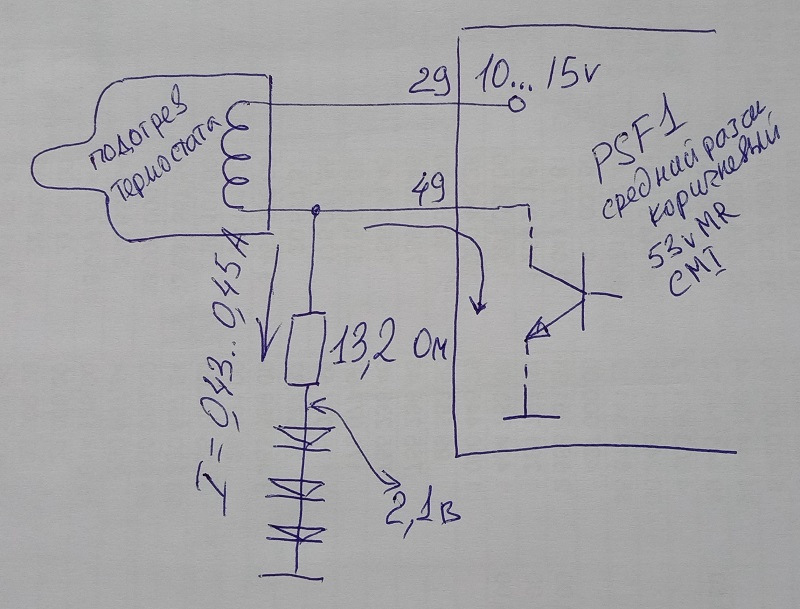 29
10... 15v
подогрев
термостата
PSF1
средний разъм
коричневый
53v MR
CMI
49
I = 0,43.. 0,45А
13,2 Ом
2,1в